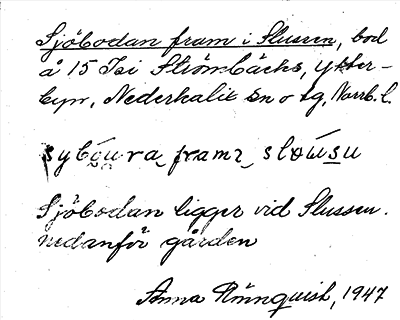 Sjöbodan fram i Slussen, bod
å 15 Isi Strömbäcks, Ytter-
byn, Nederkalix sn o tg, Norrb. l.
framı
Sjöbodan ligger vid Slussen.
nedanför gården
Anna Rönnquist, 1947